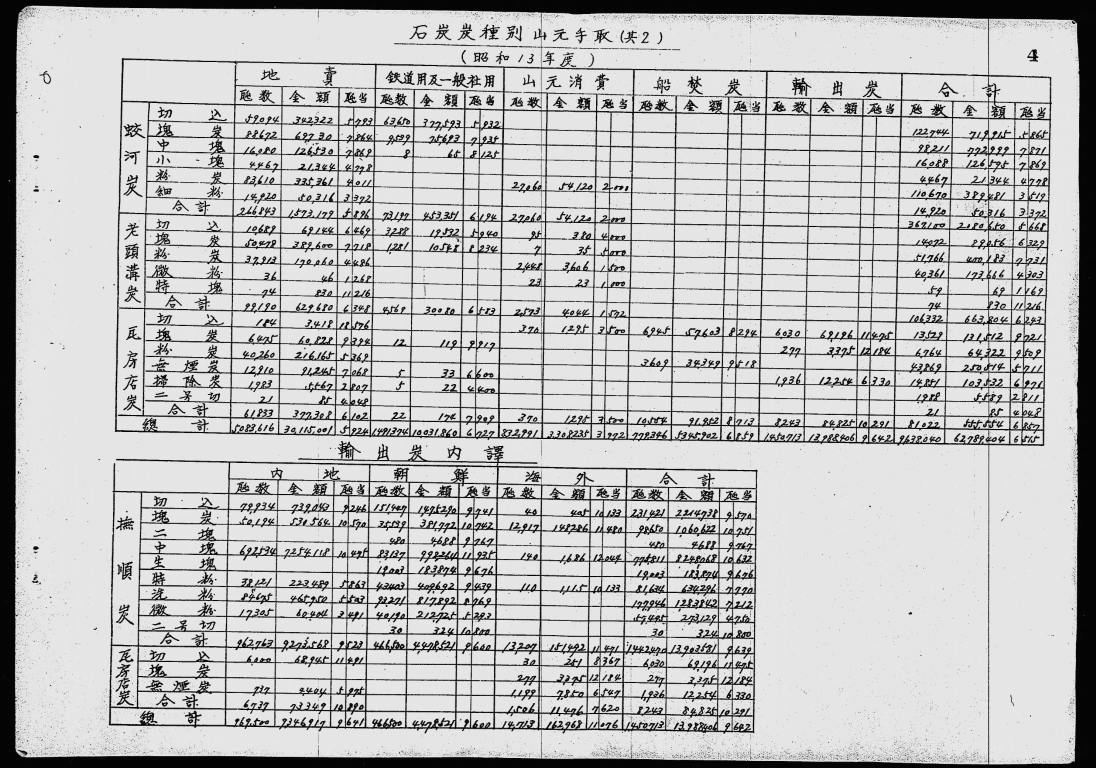 石炭炭種別山元手取(共2)
(昭和13年度)
4
地 売 鉄道用及一般社用 山元消費 船焚炭 輸出炭 合計
瓲数 金額 瓲当 瓲数 金額 瓲当 瓲数 金額 瓲当 瓲数 金額 瓲当 瓲数 金額 瓲当 瓲数 金額 瓲当
蛟河炭
切込 59,094 342,322 5.793 63,650 377,593 5.932 122,744 719,915 5.865
塊炭 88,672 9,539 75,693 7.935 98,211 772,999 7.871
中塊 16,080 126,530 7.869 8 65 8.125 16,088 126,595 7.869
小塊 4,467 21,344 4.778 4,467 21,344 4.778
粉炭 83,610 335,361 4.011 27,060 54,120 2.000 110,670 389,481 3.519
細粉 14,920 50,316 3.372 14,920 50,316 3.372
合計 266,843 1,573,179 5.896 73,197 453,351 6.194 27,060 54,120 2.000 367,100 2,080,650 5.668
老頭溝炭
切込 10,689 69,144 6.469 3,288 19,532 5.940 95 380 4.000 14,072 89,056 6.329
塊炭 50,478 389,600 7.718 1,281 10,548 8.234 7 35 5.000 51,766 400,183 7.731
粉炭 37,913 170,060 4.486 2,448 3,606 1.500 40,361 173,666 4.303
微粉 36 46 1.268 23 23 1.000 59 69 1.169
特塊 74 830 11.216 74 830 11.216
合計 99,190 629,680 6.348 4,569 30,080 6.583 2,573 4,044 1.572 106,332 663,804 6.243
瓦房店炭
切込 184 3,418 18.576 370 1,295 3.500 6,945 57,603 8.294 6,030 69,196 11.475 13,529 131,512 9.721
塊炭 6,475 60,828 9.394 12 119 9.917 277 3,375 12.184 6,764 64,322 9.509
粉炭 40,260 216,165 5.369 3,609 34,349 9.518 43,869 250,514 5.711
無煙炭 12,910 91,245 7.068 5 33 6.600 1,936 12,254 6.330 14,851 103,532 6.976
掃除炭 1,983 5,567 2.807 5 22 4.400 1,988 5,589 2.811
二号切 21 85 4.048 21 85 4.048
合計 61,833 377,308 6.102 22 174 7.909 370 1,295 3.500 10,554 91,952 8.713 8,243 84,825 10.291 81,022 555,554 6.857
総計 5,083,616 30,115,001 5.924 1,491,374 10,031,860 6.727 832,991 3,308,235 3.972 779,346 5,345,902 6.859 1,450,713 13,988,406 9.642 9,638,040 62,789,404 6.515
輸出炭内譯
内地 朝鮮 海外 合計
瓲数 金額 瓲当 瓲数 金額 瓲当 瓲数 金額 瓲当 瓲数 金額 瓲当
撫順炭
切込 79,934 739,043 9.246 151,447 1,475,290 9.741 40 405 10.133 231,421 2,214,738 9.570
塊炭 50,194 530,564 10.570 35,539 381,772 10.742 12,917 148,286 11.480 98,650 1,060,622 10.751
二塊 480 4,688 9.767 480 4,688 9.767
中塊 692,534 7,254,118 10.475 83,137 992,264 11.935 140 1,686 12.044 775,811 8,248,068 10.632
生塊 19,003 183,874 9.676 19,003 183,874 9.676
特粉 38,121 223,489 5.863 43,403 409,692 9.439 110 1,115 10.133 81,634 634,296 7.770
洗粉 84,675 465,950 5.503 93,271 817,892 8.769 177,946 1,283,842 7.212
微粉 17,305 60,404 3.491 40,190 212,725 5.293 57,495 273,129 4.750
二号切 30 324 10.800 30 324 10.800
合計 962,763 9,273,568 9.523 466,500 4,478,521 9.600 13,207 151,492 11.471 1,442,470 13,903,581 9.639
瓦房店炭
切込 6,000 68,945 11.491 30 251 8.367 6,030 69,196 11.475
塊炭 277 3,375 12.184 277 3,375 12.184
無煙炭 737 4,404 5.975 1,199 7,850 6.547 1,936 12,254 6.330
合計 6,737 73,349 10.890 1,506 11,476 7.620 8,243 84,825 10.291
総計 969,500 9,346,917 9.641 466,500 4,478,521 9.600 14,713 162,968 11.076 1,450,713 13,988,406 9.642